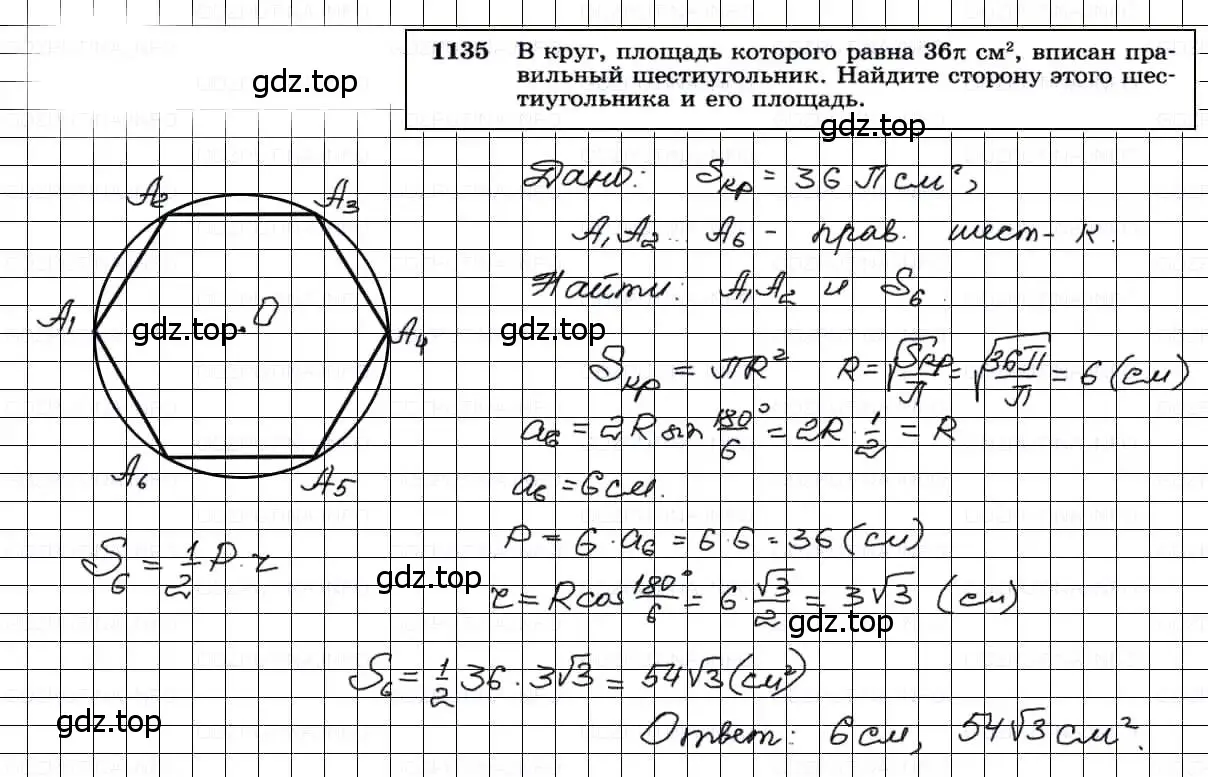 1135 В круг, площадь которого равна 36π см², вписан пра-
вильный шестиугольник. Найдите сторону этого шес-
тиугольника и его площадь.
gdz.top
gdz.top
Дано: Sкр = 36 П см²,
A₁A₂... A₆ - прав. шест-к.
Найти: A₁A₂ и S₆.
A₂ A₃
A₁ gdz.top O A₄
gdz.top
A₆ A₅
Sкр = πR² R = √(Sкр/П) = √(36П/П) = 6 (см)
a₆ = 2R sin 180°/6 = 2R · 1/2 = R
a₆ = 6 см.
P = 6 · a₆ = 6 · 6 = 36 (см)
S₆ = 1/2 P · r
gdz.top
r = R cos 180°/6 = 6 · √3/2 = 3√3 (см)
gdz.top
S₆ = 1/2 36 · 3√3 = 54√3 (см²)
gdz.top
Ответ: 6 см, 54√3 см².